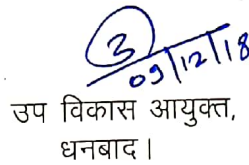 3
09/12/18
उप विकास आयुक्त,
धनबाद।